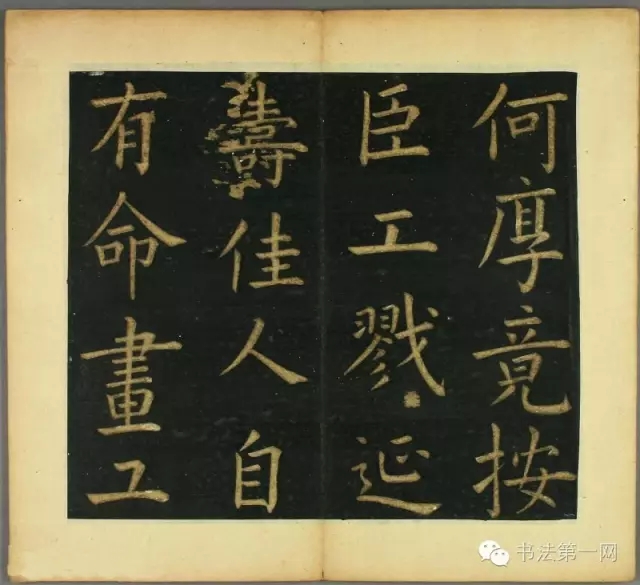 何厚竟按
臣工戮延
壽佳人自
有命畫工
书法第一网